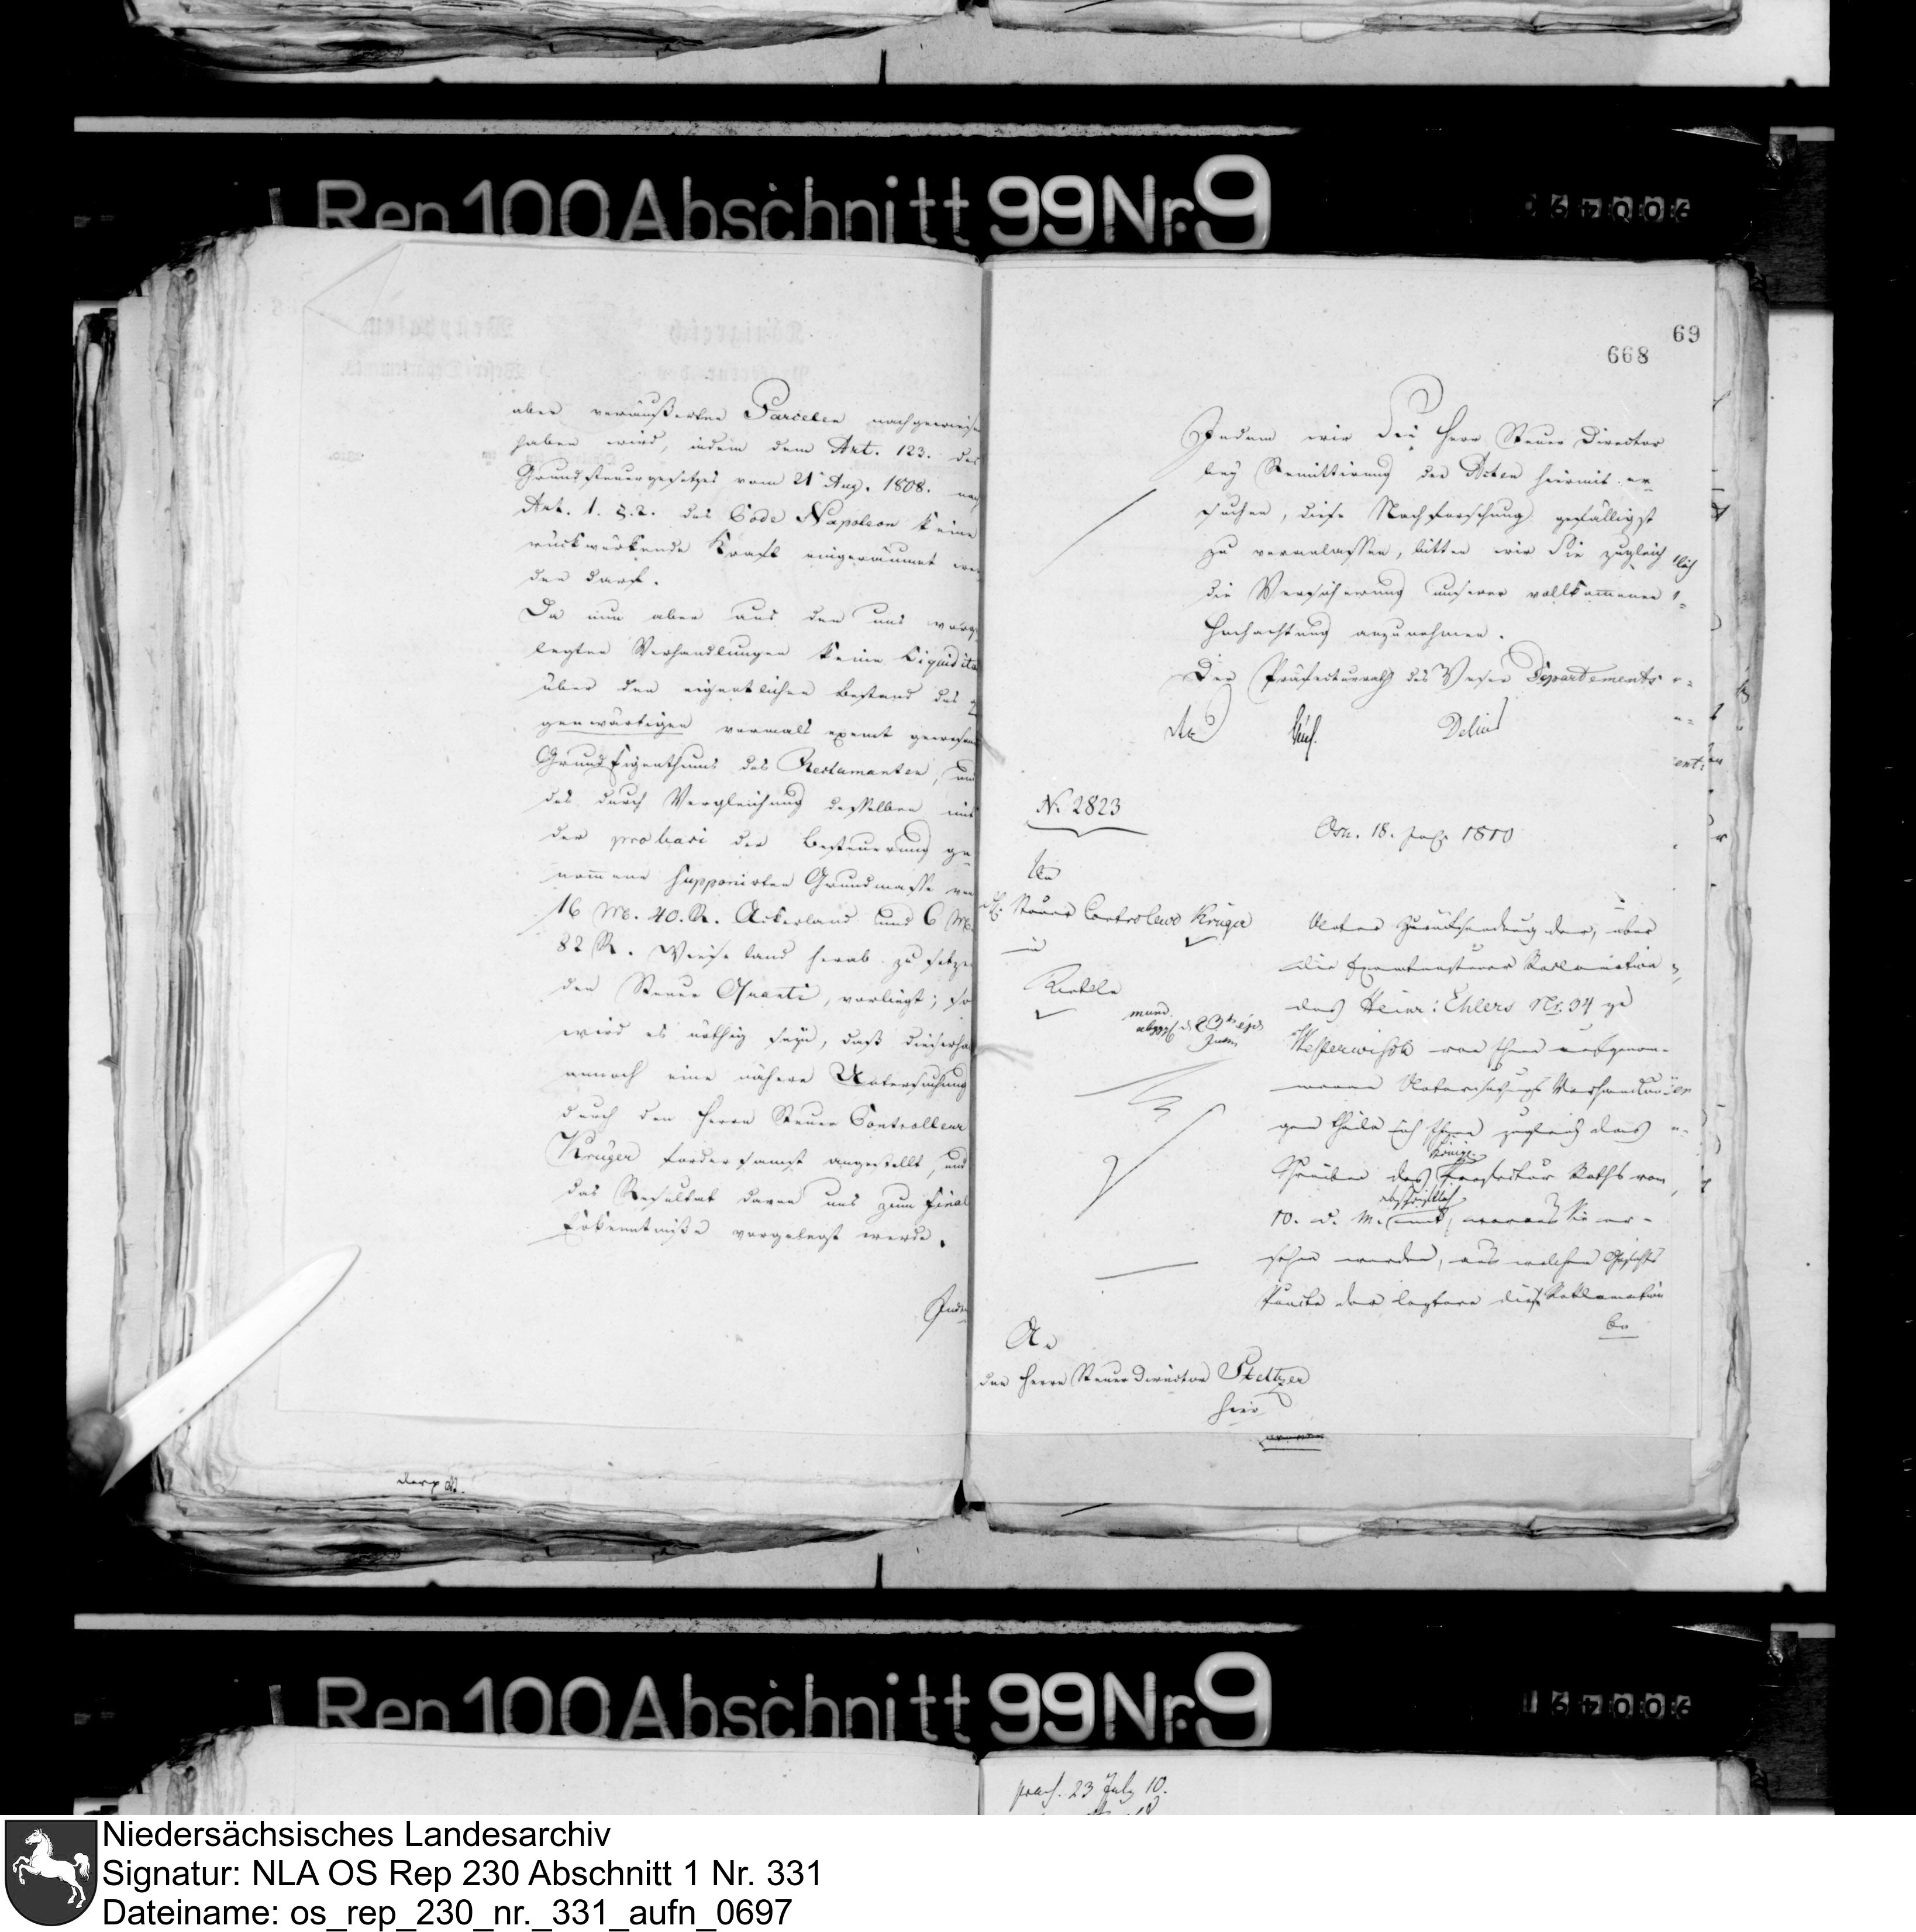 Rep 100 Abschnitt 99 Nr. 9
aber veräußerten Parcelen nachgewiesen
haben wird, indem dem Art. 123. des
Grundsteuergesetzes vom 21 Aug. 1808. nach
Art. 1. des Code Napoleon keine
rückwürkende Kraft eingeräumet wer
den darf.
Da nun aber aus den uns vorge
legten Verhandlungen keine Liquidität
über den eigentlichen Bestand des ge
genwärtigen vormals exemt gewesenen
GrundEigenthums des Reclamanten, und
des durch Vergleichung desselben mit
der pro basi der Besteuerung ge
nommene supponirten Grundmasse von
16 M. 40. R. Ackerland und 6 M.
82 R. Wiese land herab zu setzen
den Steuer Quanti, vorliegt; so
wird es nöthig seyn, daß dieserhalb
annoch eine nähere Untersuchung
durch den Herrn Steuer Controlleur
Krüger fordersamst angestellt, und
das Resultat davon uns zum Final
Erkenntniße vorgelegt werde.
Indem
69
668
Indem wir Sie Herr Steuer Director
bey Remittirung der Acten hiermit er
suchen, diese Nachforschung gefälligst
zu veranlassen, bitten wir Sie zugleich
die Versicherung unserer vollkommenen
Hochachtung anzunehmen.
Der Präfecturrath des Weser Departements
Delius
N. 2823
Osn. 18. July 1810
An
Steuer Controleur Krüger
in
mund.
Unter Zurücksendung der, über
die Exemtensteuer Reclamation
des Heinr: Ehlers Nr. 34 zu
Westerwisch von Ihnen aufgenom-
menen Untersuchungs Verhandlun
gen theile ich Ihnen zugleich das
Königl.
Schreiben des Praefectur Raths vom
abschriftlich
10. d. M. mit, woraus Sie er-
sehen werden, aus welchem Gesichts
Puncte der letztere diese Reklamation
be
An
den Herrn Steuer Director Steltzer
hier
Rep 100 Abschnitt 99 Nr. 9
praes. 23 July 10.
Niedersächsisches Landesarchiv
Signatur: NLA OS Rep 230 Abschnitt 1 Nr. 331
Dateiname: os_rep_230_nr._331_aufn_0697